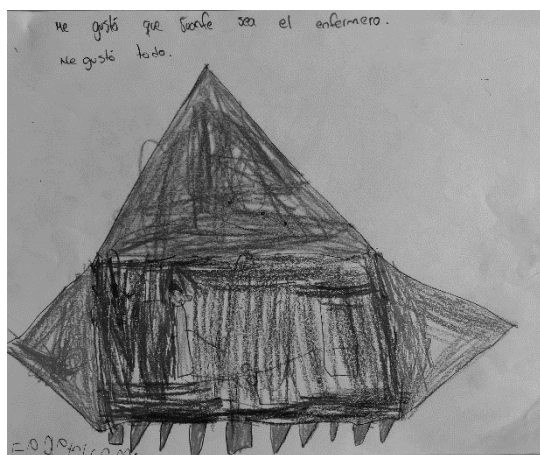 Me gustó que Juanfe sea el enfermero.
Me gustó todo.